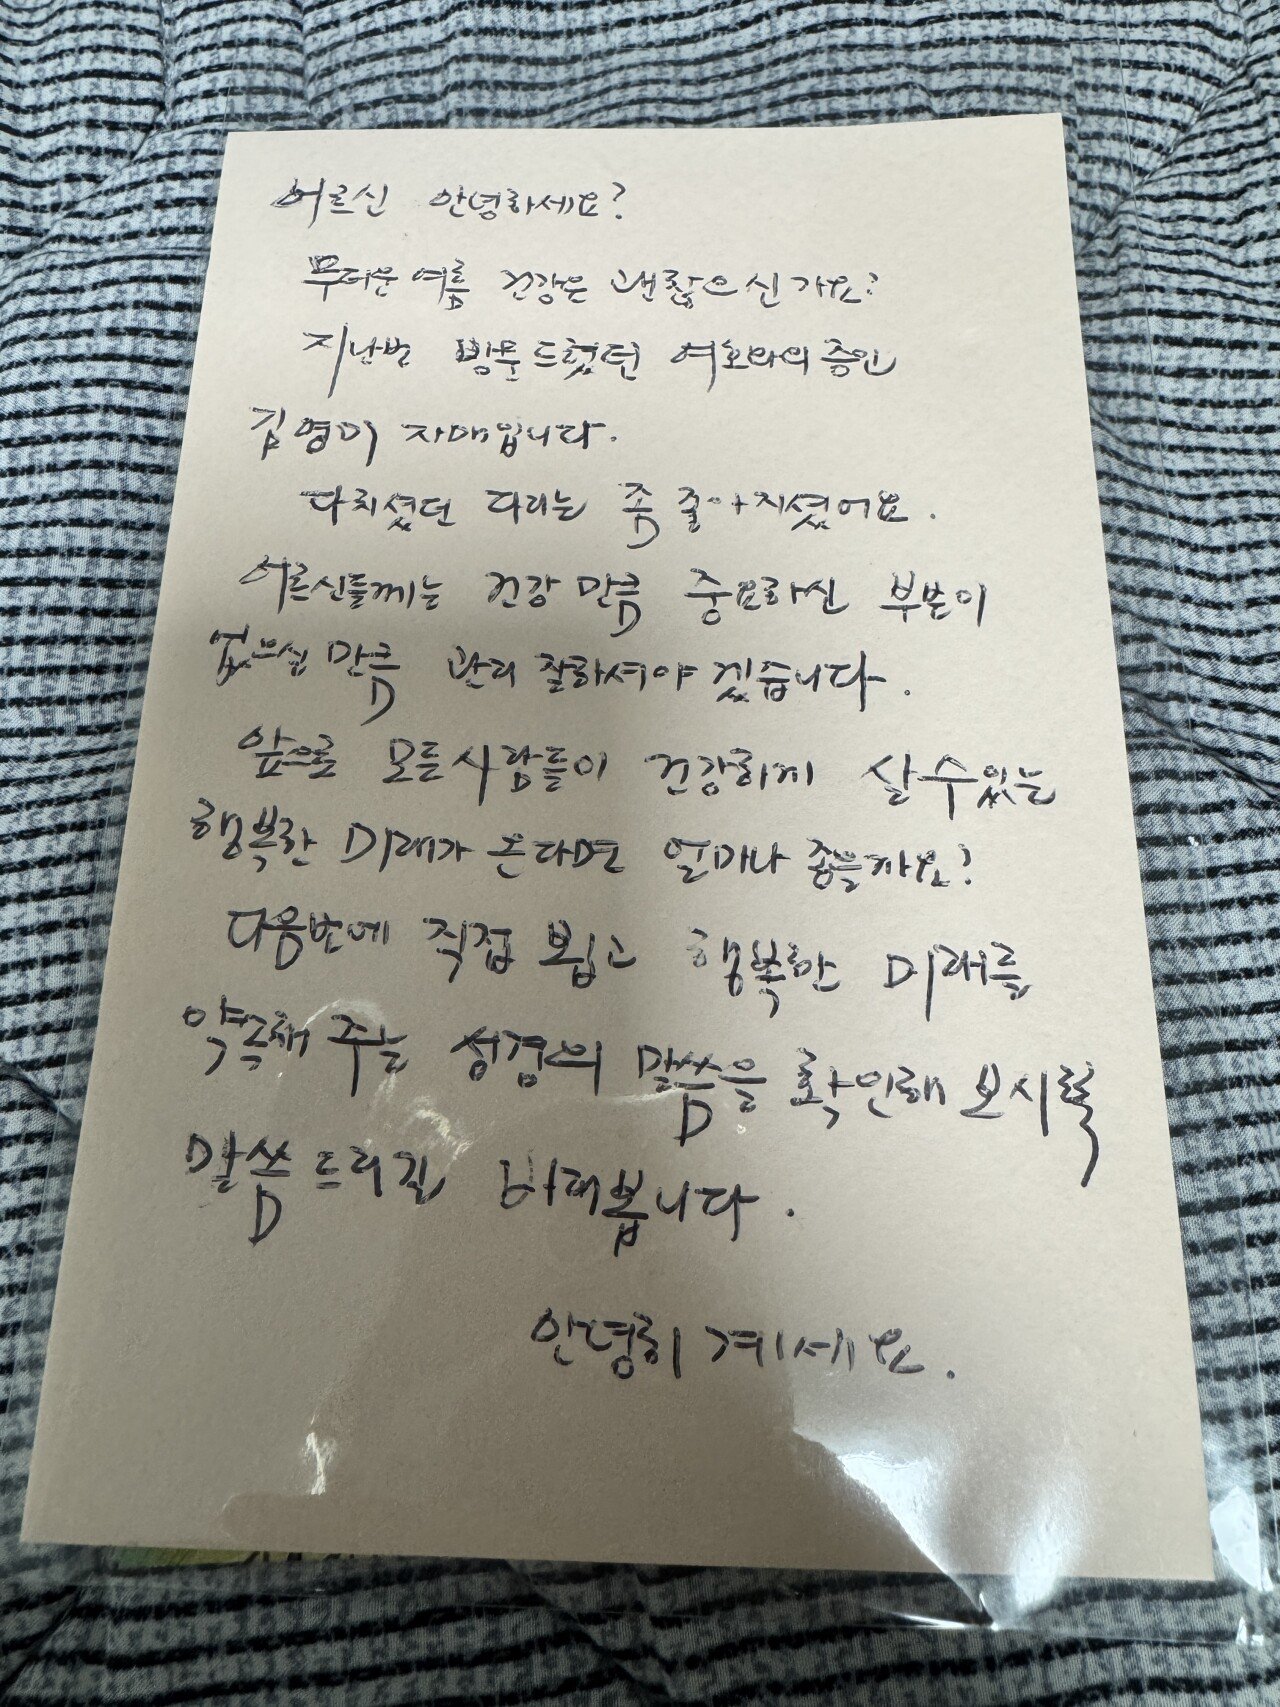 어르신 안녕하세요?
무더운 여름 건강은 괜찮으신가요?
지난번 방문드렸던 여호와의 증인
김영미 자매입니다.
다치셨던 다리는 좀 좋아지셨어요.
어르신들께는 건강 만큼 중요하신 부분이
없으신 만큼 관리 잘하셔야 겠습니다.
앞으로 모든사람들이 건강하게 살수있는
행복한 미래가 온다면 얼마나 좋을까요?
다음번에 직접 뵙고 행복한 미래를
약속해 주는 성경의 말씀을 확인해 보시록
말씀드리길 바래봅니다.
안녕히 계세요.